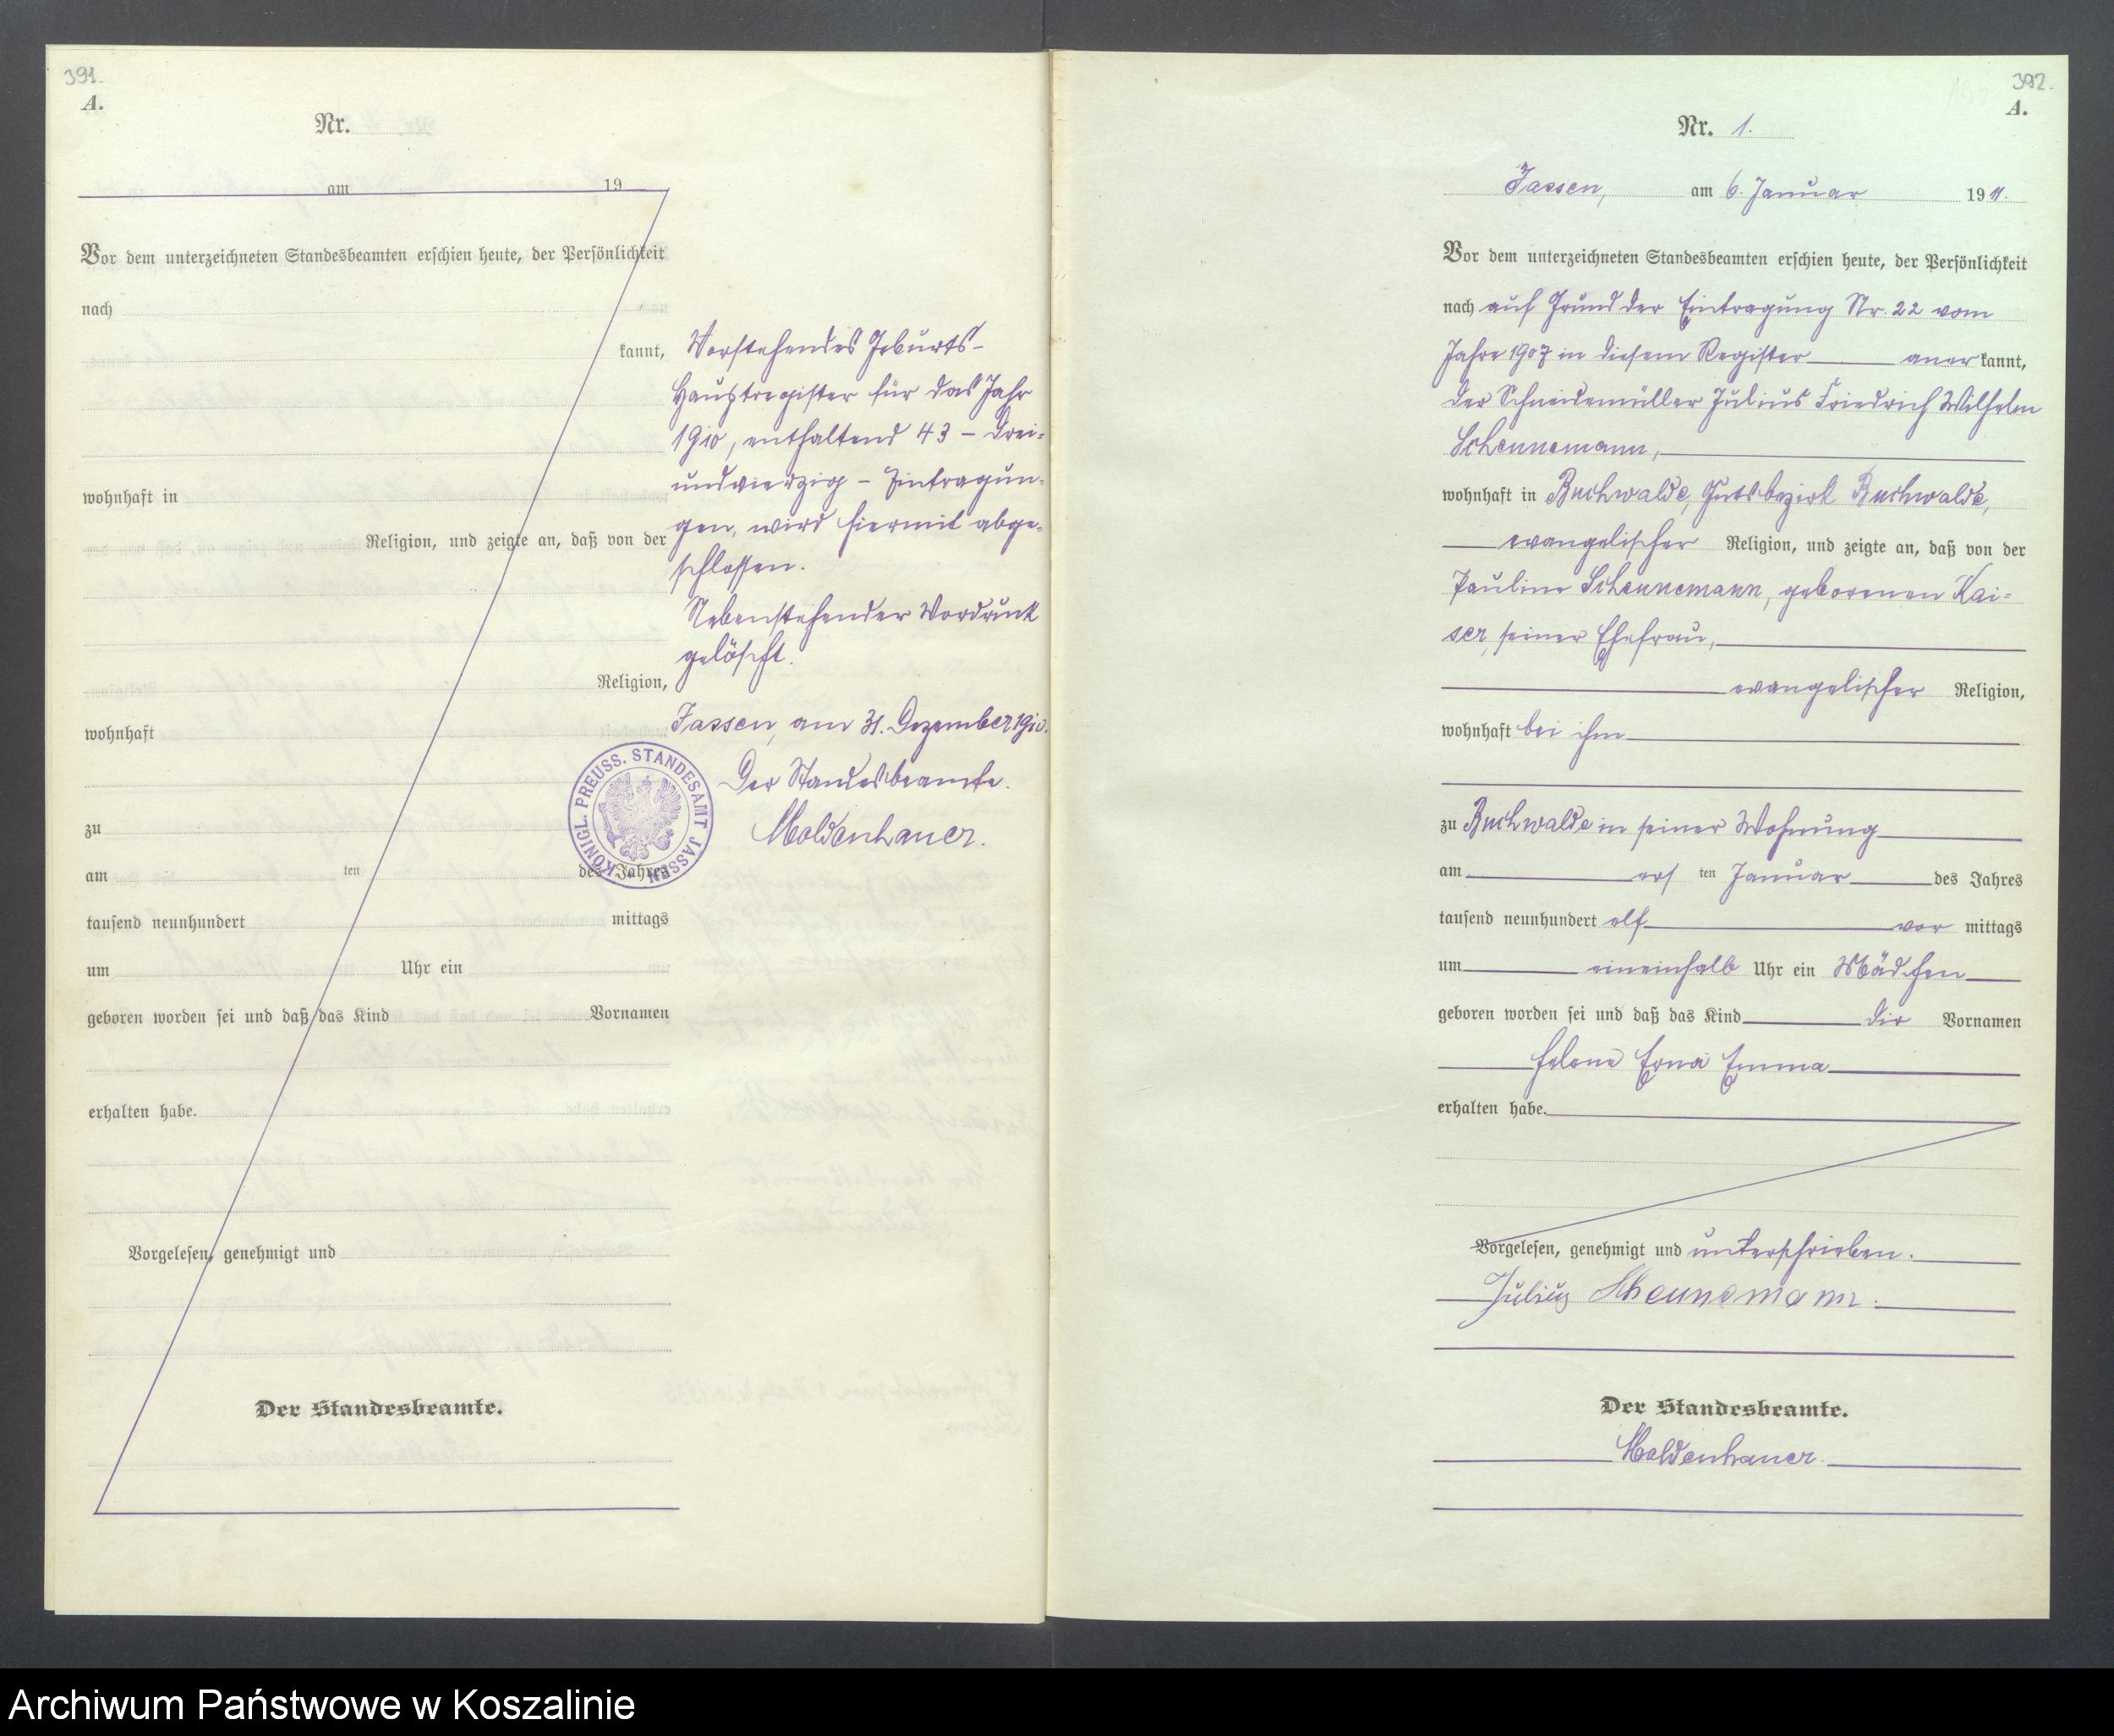 391.
A.
Nr.
am 19
Vor dem unterzeichneten Standesbeamten erschien heute, der Persönlichkeit
nach
kannt,
wohnhaft in
Religion, und zeigte an, daß von der
Religion,
wohnhaft
zu
am ten des Jahres
tausend neunhundert mittags
um Uhr ein
geboren worden sei und daß das Kind Vornamen
erhalten habe.
Vorgelesen, genehmigt und
Der Standesbeamte.
Vorstehendes Geburts-
Hauptregister für das Jahr
1910, enthaltend 43 - drei-
undvierzig - Eintragun-
gen, wird hiermit abge-
schlossen.
Nebenstehender Vordruck
gelöscht.
Jassen, am 31. Dezember 1910.
Der Standesbeamte.
Moldenhauer.
KÖNIGL. PREUSS. STANDESAMT JASSEN
392.
A.
Nr. 1.
Jassen, am 6. Januar 1911.
Vor dem unterzeichneten Standesbeamten erschien heute, der Persönlichkeit
nach auf Grund der Eintragung Nr. 22 vom
Jahre 1907 in diesem Register anerkannt,
der Schneidemüller Julius Friedrich Wilhelm
Scheunemann,
wohnhaft in Buchwalde, Gutsbezirk Buchwalde,
evangelischer Religion, und zeigte an, daß von der
Pauline Scheunemann, geborenen Kai-
ser, seiner Ehefrau,
evangelischer Religion,
wohnhaft bei ihm
zu Buchwalde in seiner Wohnung
am ersten Januar des Jahres
tausend neunhundert elf vormittags
um eineinhalb Uhr ein Mädchen
geboren worden sei und daß das Kind die Vornamen
Helene Erna Emma
erhalten habe.
Vorgelesen, genehmigt und unterschrieben.
Julius Scheunemann.
Der Standesbeamte.
Moldenhauer.
Archiwum Państwowe w Koszalinie